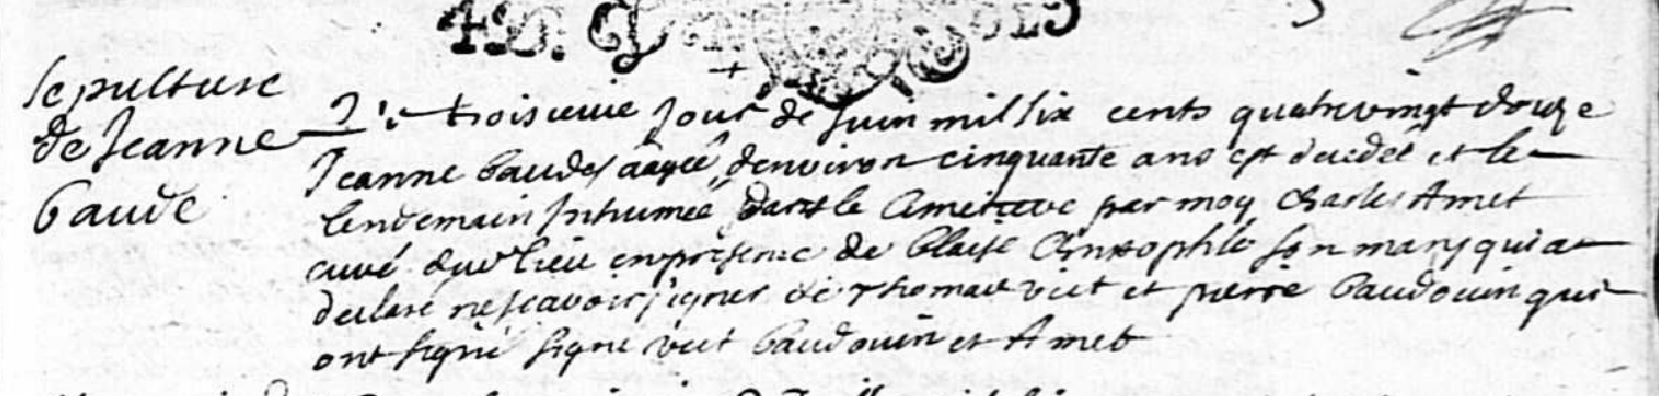 sepulture
de Jeanne
baude
Le troisieme jour de juin mil six cents quatrevingt douze
Jeanne baude aagée denviron cinquante ans est decedeé et le
lendemain inhumeé dans le Cimetiere par moy Charles Amet
curé dud lieu en presence de blaise Cristophle son mary qui a
declaré ne scavoir signer de thomas viet et pierre baudouin qui
ont signé signe viet baudouin et Amet